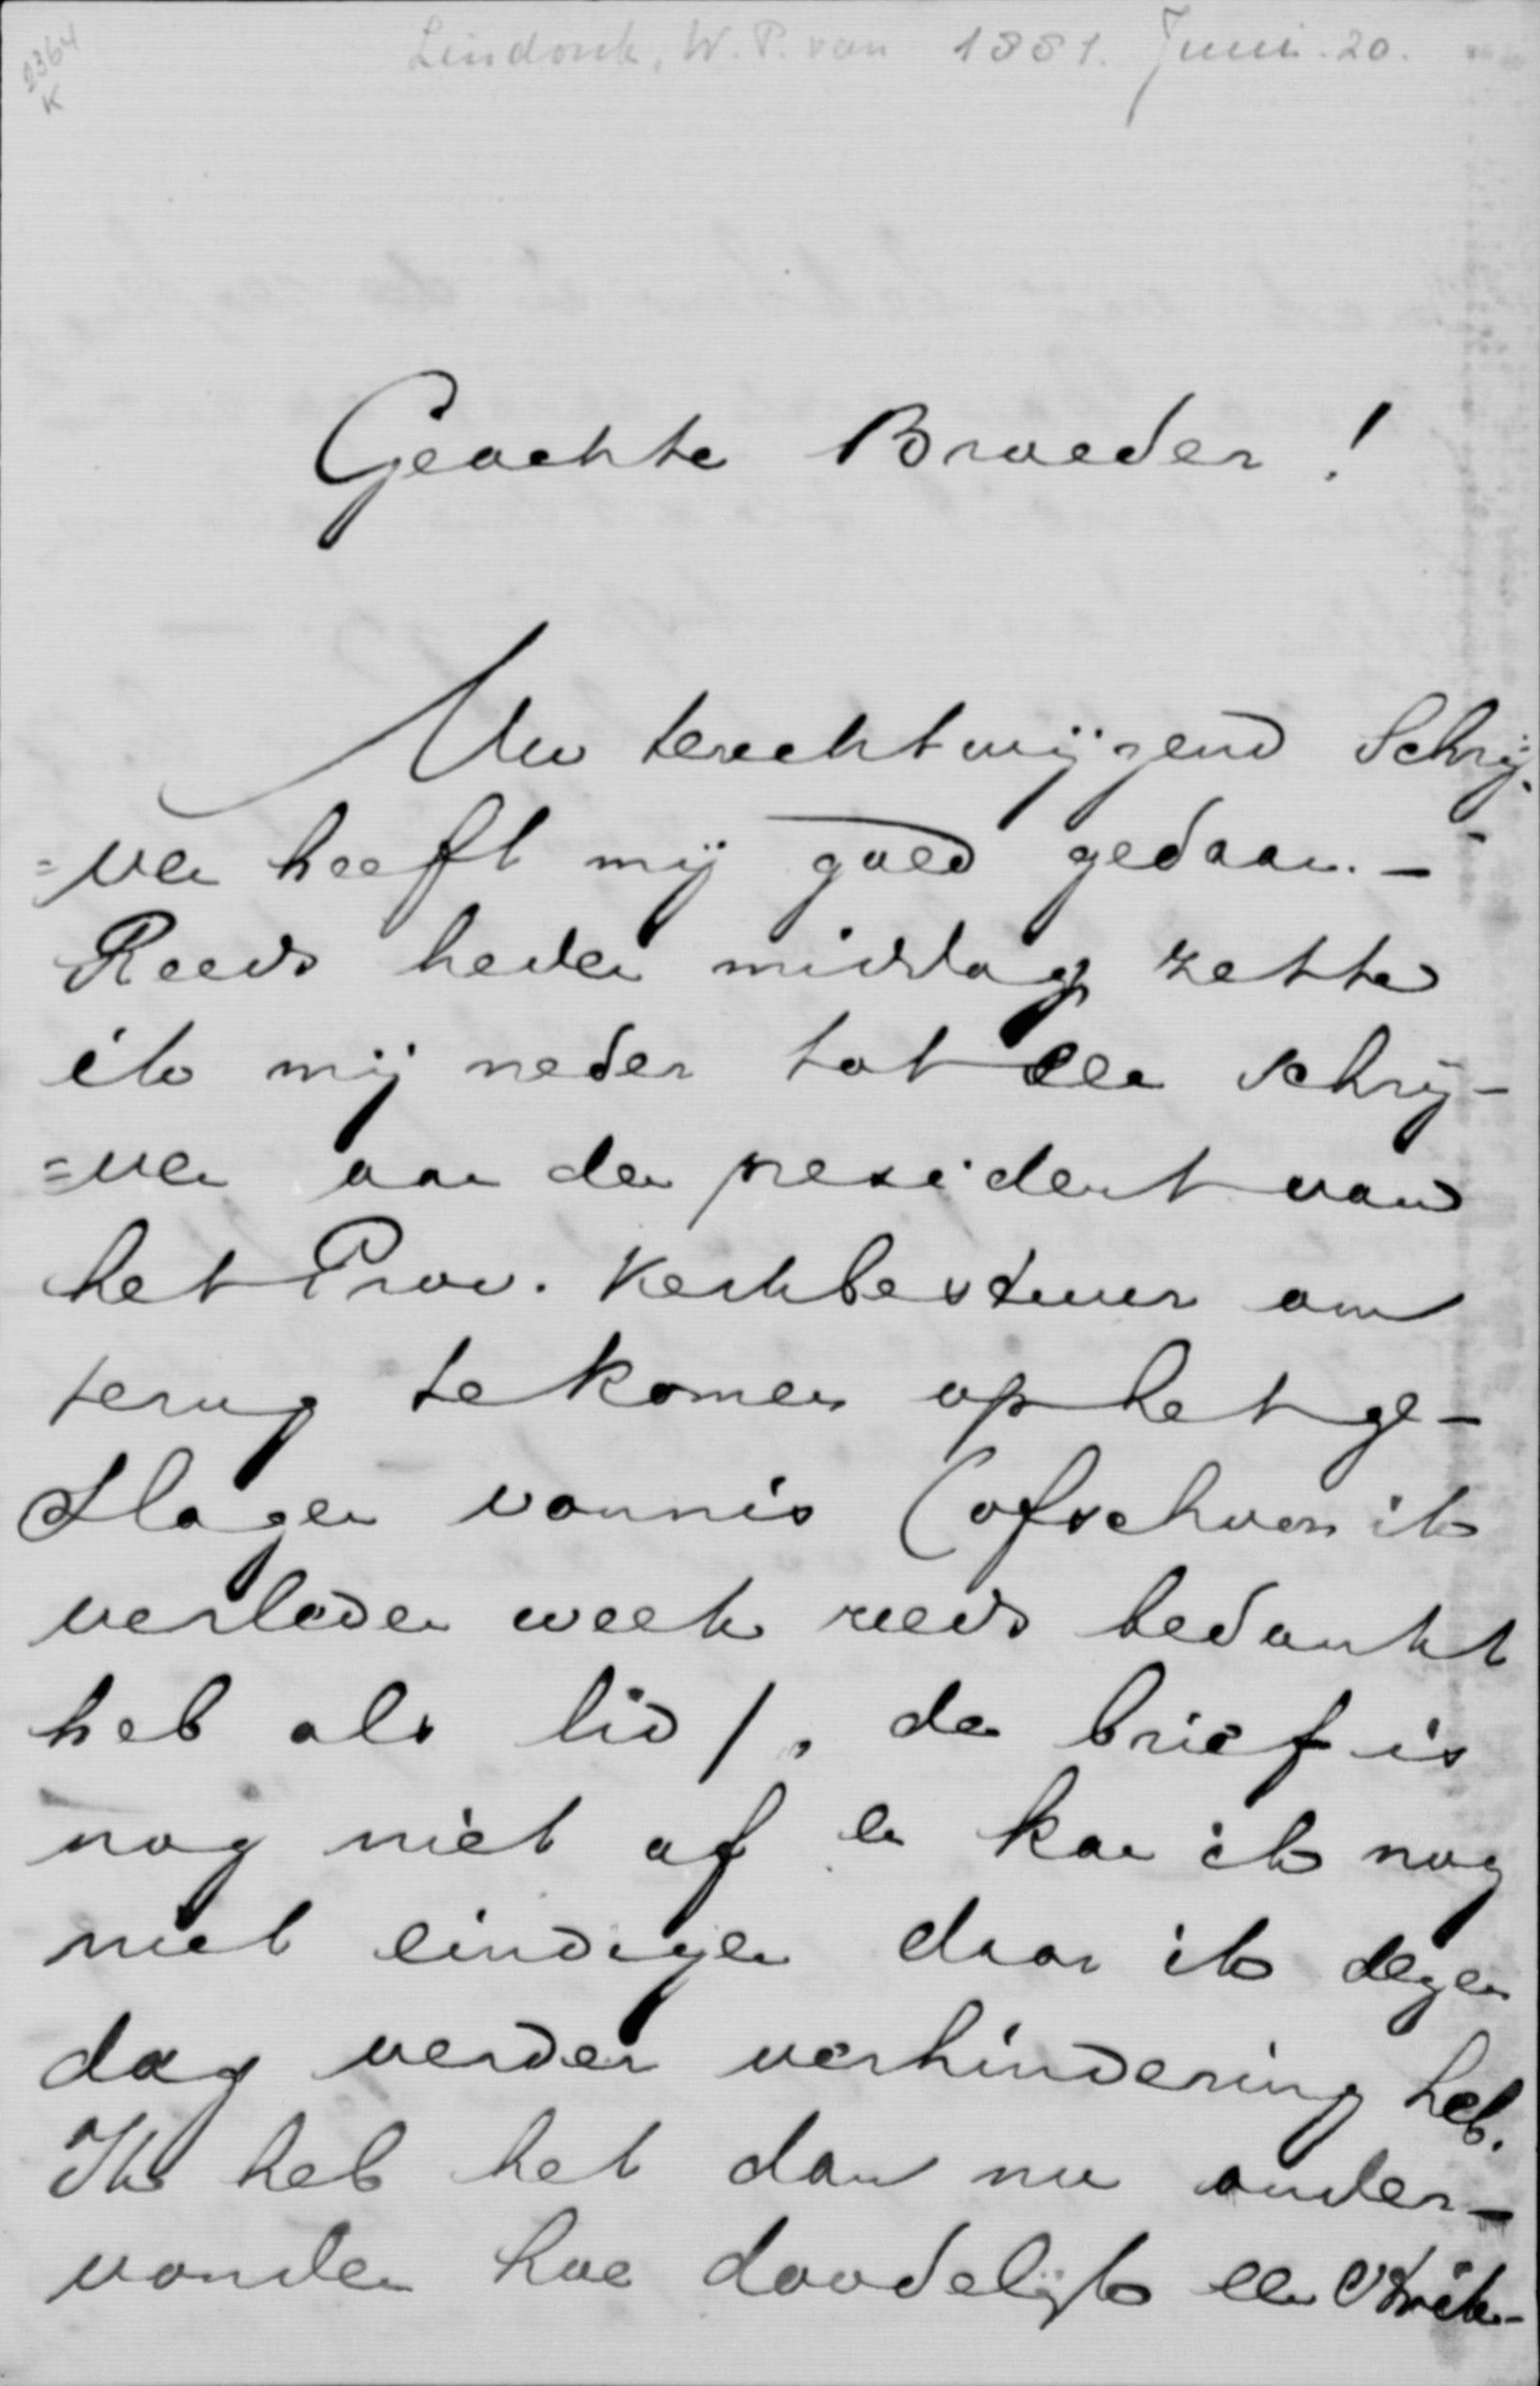 2364
K
Lindonk, W. P. van 1881. Juni. 20.
Geachte Broeder!
Uw terechtwijzend Schrij-
=ven heeft mij goed gedaan. -
Reeds heden middag zette
ik mij neder tot een schrij-
=ven aan den president van
het Prov. Kerkbestuur om
terug te komen op het ge-
slagen vonnis (ofschoon ik
verleden week reeds bedankt
heb als lid). de brief is
nog niet af en kan ik nog
niet eindigen daar ik dezen
dag verder verhindering heb.
Ik heb het dan nu onder-
vonden hoe doodelijk een